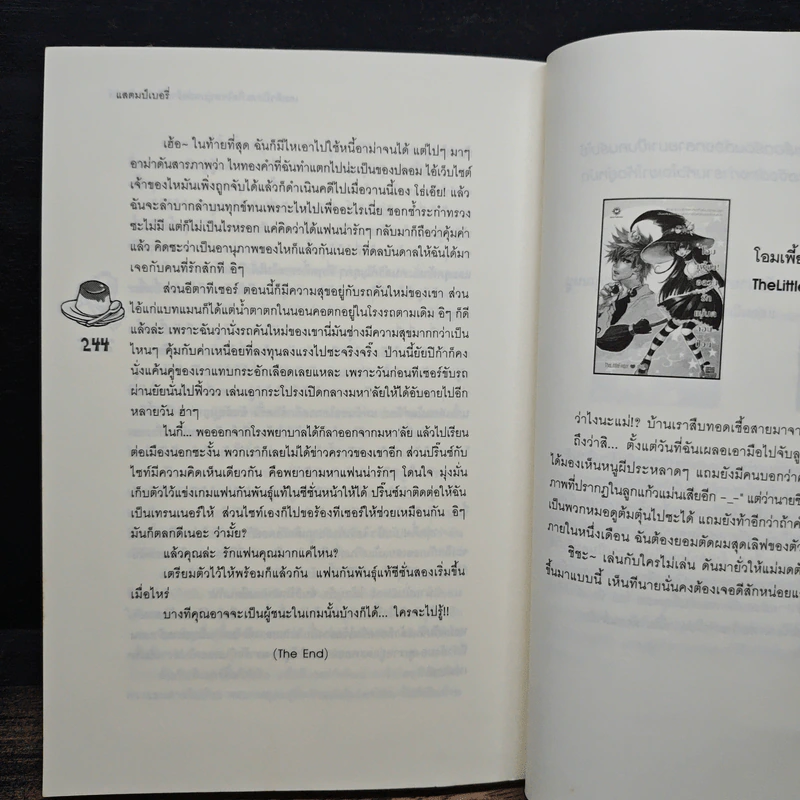 แสตมป์เบอรี่
เฮ้อ~ ในท้ายที่สุด ฉันก็มีไหเอาไปใช้หนี้อาม่าจนได้ แต่ไปๆ มาๆ
อาม่าดันสารภาพว่า ไหทองคำที่ฉันทำแตกไปน่ะเป็นของปลอม ไอ้เว็บไซต์
เจ้าของไหมันเพิ่งถูกจับได้แล้วก็ดำเนินคดีไปเมื่อวานนี้เอง โธ่เอ๊ย! แล้ว
ฉันจะลำบากลำบนทุกข์ทนเพราะไหไปเพื่ออะไรเนี่ย ชอกช้ำระกำทรวง
ซะไม่มี แต่ก็ไม่เป็นไรหรอก แค่คิดว่าได้แฟนน่ารักๆ กลับมาก็ถือว่าคุ้มค่า
แล้ว คิดซะว่าเป็นอานุภาพของไหก็แล้วกันเนอะ ที่ดลบันดาลให้ฉันได้มา
เจอกับคนที่รักสักที อิๆ
ส่วนอีตาทีเซอร์ ตอนนี้ก็มีความสุขอยู่กับรถคันใหม่ของเขา ส่วน
ไอ้แก่แบทแมนก็ได้แต่น้ำตาตกในนอนคอตกอยู่ในโรงรถตามเดิม อิๆ ก็ดี
แล้วล่ะ เพราะฉันว่านั่งรถคันใหม่ของเขานี่มันช่างมีความสุขมากกว่าเป็น
ไหนๆ คุ้มกับค่าเหนื่อยที่ลงทุนลงแรงไปซะจริงจริ๊ง ป่านนี้ยัยปิก้าก็คง
นั่งแค้นคู่ของเราแทบกระอักเลือดเลยแหละ เพราะวันก่อนทีเซอร์ขับรถ
ผ่านยัยนั่นไปฟิ้ววว เล่นเอากระโปรงเปิดกลางมหา'ลัยให้ได้อับอายไปอีก
หลายวัน ฮ่าๆ
ไนกี้... พอออกจากโรงพยาบาลได้ก็ลาออกจากมหา'ลัย แล้วไปเรียน
ต่อเมืองนอกซะงั้น พวกเราก็เลยไม่ได้ข่าวคราวของเขาอีก ส่วนปริ๊นซ์กับ
ไซท์มีความคิดเห็นเดียวกัน คือพยายามหาแฟนน่ารักๆ โดนใจ มุ่งมั่น
เก็บตัวไว้แข่งเกมแฟนกันพันธุ์แท้ในซีซั่นหน้าให้ได้ ปริ๊นซ์มาติดต่อให้ฉัน
เป็นเทรนเนอร์ให้ ส่วนไซท์เองก็ไปขอร้องทีเซอร์ให้ช่วยเหมือนกัน อิๆ
มันก็ตลกดีเนอะ ว่ามั้ย?
แล้วคุณล่ะ รักแฟนคุณมากแค่ไหน?
เตรียมตัวไว้ให้พร้อมก็แล้วกัน แฟนกันพันธุ์แท้ซีซั่นสองเริ่มขึ้น
เมื่อไหร่
บางทีคุณอาจจะเป็นผู้ชนะในเกมนั้นบ้างก็ได้... ใครจะไปรู้!!
(The End)
244
โอมเพี้ย
TheLittle
ว่าไงนะแม่!? บ้านเราสืบทอดเชื้อสายมาจา
ถึงว่าสิ... ตั้งแต่วันที่ฉันเผลอเอามือไปจับลู
ได้มองเห็นหนูผีประหลาดๆ แถมยังมีคนบอกว่า
ภาพที่ปรากฏในลูกแก้วแม่นเสียอีก -_-" แต่ว่านายชี
เป็นพวกหมอดูต้มตุ๋นไปซะได้ แถมยังท้าอีกว่าถ้าค้
ภายในหนึ่งเดือน ฉันต้องยอมตัดผมสุดเลิฟของตัว
ชิชะ~ เล่นกับใครไม่เล่น ดันมายั่วให้แม่มดตั
ขึ้นมาแบบนี้ เห็นทีนายนั่นคงต้องเจอดีสักหน่อยแ